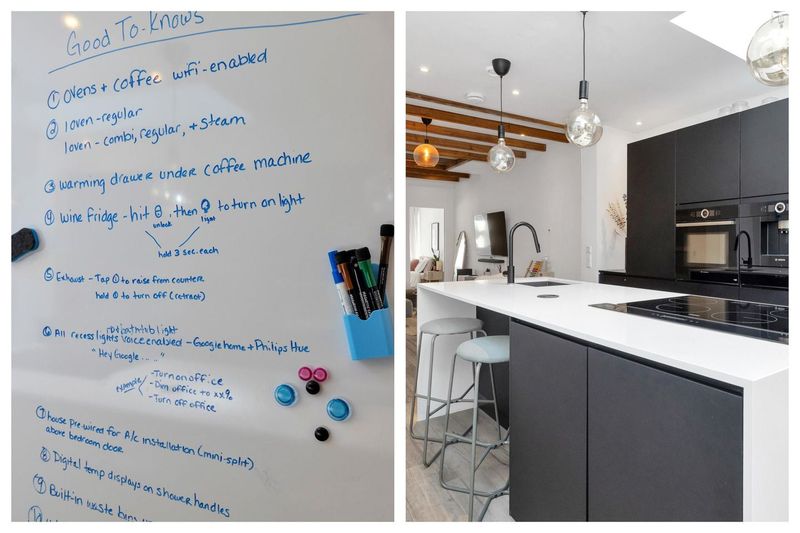 Good To-Knows
① Ovens + coffee wifi-enabled
② 1 oven - regular
1 oven - combi, regular, + steam
③ warming drawer under coffee machine
④ wine fridge - hit , then to turn on light
unlock light
hold 3 sec. each
⑤ Exhaust - Tap ① to raise from counter
hold to turn off (retract)
⑥ All recess lights voice enabled - Google home + Philips Hue
"Hey Google....."
- Turn on office
- Dim office to xx%
- Turn off office
⑦ house pre-wired for A/c installation (mini-split)
above bedroom door
⑧ Digital temp displays on shower handles
⑨ Built-in waste bins